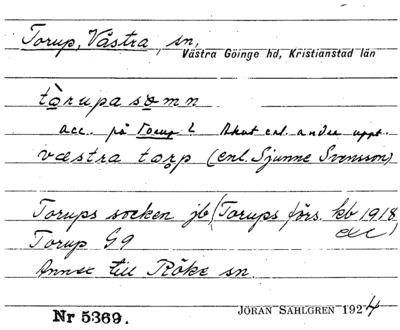 Torup, Västra, sn,
Västra Göinge hd, Kristianstad län
tòrupa somn
acc. på Torup? Akut enl. andra uppt.
væstra torp (enl. Sjunne Svensson)
Torups socken jb (Torups förs. kb 1918
etc)
Torup G9
Annex till Röke sn.
Nr 5369.
JÖRAN SAHLGREN 1924